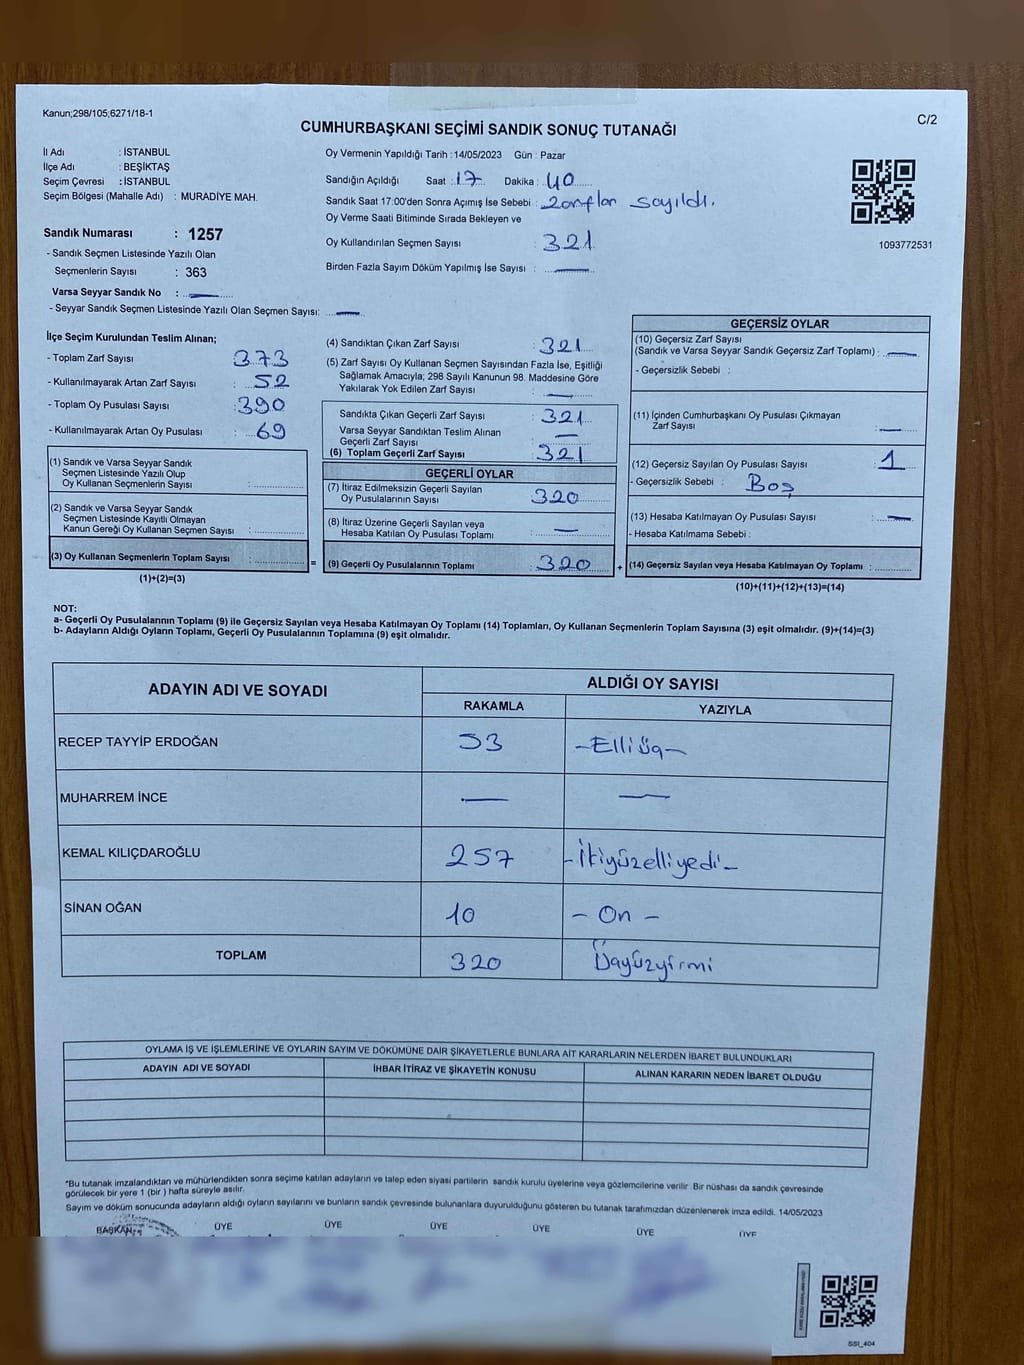 Kanun;298/105;6271/18-1
C/2
CUMHURBAŞKANI SEÇİMİ SANDIK SONUÇ TUTANAĞI
İl Adı : İSTANBUL
İlçe Adı : BEŞİKTAŞ
Seçim Çevresi : İSTANBUL
Seçim Bölgesi (Mahalle Adı) : MURADİYE MAH.
Sandık Numarası : 1257
- Sandık Seçmen Listesinde Yazılı Olan
Seçmenlerin Sayısı : 363
Varsa Seyyar Sandık No :
- Seyyar Sandık Seçmen Listesinde Yazılı Olan Seçmen Sayısı:
Oy Vermenin Yapıldığı Tarih :14/05/2023 Gün : Pazar
Sandığın Açıldığı Saat : 17 Dakika : 40
Sandık Saat 17:00'den Sonra Açımış İse Sebebi : Zarflar sayıldı.
Oy Verme Saati Bitiminde Sırada Bekleyen ve
Oy Kullandırılan Seçmen Sayısı : 321
Birden Fazla Sayım Döküm Yapılmış İse Sayısı :
1093772531
İlçe Seçim Kurulundan Teslim Alınan;
- Toplam Zarf Sayısı : 373
- Kullanılmayarak Artan Zarf Sayısı : 52
- Toplam Oy Pusulası Sayısı : 390
- Kullanılmayarak Artan Oy Pusulası : 69
(1) Sandık ve Varsa Seyyar Sandık
Seçmen Listesinde Yazılı Olup
Oy Kullanan Seçmenlerin Sayısı :
(2) Sandık ve Varsa Seyyar Sandık
Seçmen Listesinde Kayıtlı Olmayan
Kanun Gereği Oy Kullanan Seçmen Sayısı :
(3) Oy Kullanan Seçmenlerin Toplam Sayısı :
(1)+(2)=(3)
(4) Sandıktan Çıkan Zarf Sayısı : 321
(5) Zarf Sayısı Oy Kullanan Seçmen Sayısından Fazla İse, Eşitliği
Sağlamak Amacıyla; 298 Sayılı Kanunun 98. Maddesine Göre
Yakılarak Yok Edilen Zarf Sayısı :
Sandıkta Çıkan Geçerli Zarf Sayısı : 321
Varsa Seyyar Sandıktan Teslim Alınan
Geçerli Zarf Sayısı :
(6) Toplam Geçerli Zarf Sayısı : 321
GEÇERLİ OYLAR
(7) İtiraz Edilmeksizin Geçerli Sayılan
Oy Pusulalarının Sayısı : 320
(8) İtiraz Üzerine Geçerli Sayılan veya
Hesaba Katılan Oy Pusulası Toplamı :
(9) Geçerli Oy Pusulalarının Toplamı : 320
= +
GEÇERSİZ OYLAR
(10) Geçersiz Zarf Sayısı
(Sandık ve Varsa Seyyar Sandık Geçersiz Zarf Toplamı) :
- Geçersizlik Sebebi :
(11) İçinden Cumhurbaşkanı Oy Pusulası Çıkmayan
Zarf Sayısı :
(12) Geçersiz Sayılan Oy Pusulası Sayısı : 1
- Geçersizlik Sebebi : Boş
(13) Hesaba Katılmayan Oy Pusulası Sayısı :
- Hesaba Katılmama Sebebi :
(14) Geçersiz Sayılan veya Hesaba Katılmayan Oy Toplamı :
(10)+(11)+(12)+(13)=(14)
NOT:
a- Geçerli Oy Pusulalarının Toplamı (9) ile Geçersiz Sayılan veya Hesaba Katılmayan Oy Toplamı (14) Toplamları, Oy Kullanan Seçmenlerin Toplam Sayısına (3) eşit olmalıdır. (9)+(14)=(3)
b- Adayların Aldığı Oyların Toplamı, Geçerli Oy Pusulalarının Toplamına (9) eşit olmalıdır.
ADAYIN ADI VE SOYADI ALDIĞI OY SAYISI
RAKAMLA YAZIYLA
RECEP TAYYİP ERDOĞAN 53 - Elliüç -
MUHARREM İNCE
KEMAL KILIÇDAROĞLU 257 - İkiyüzelliyedi -
SİNAN OĞAN 10 - On -
TOPLAM 320 Üçyüzyirmi
OYLAMA İŞ VE İŞLEMLERİNE VE OYLARIN SAYIM VE DÖKÜMÜNE DAİR ŞİKAYETLERLE BUNLARA AİT KARARLARIN NELERDEN İBARET BULUNDUKLARI
ADAYIN ADI VE SOYADI İHBAR İTİRAZ VE ŞİKAYETİN KONUSU ALINAN KARARIN NEDEN İBARET OLDUĞU
*Bu tutanak imzalandıktan ve mühürlendikten sonra seçime katılan adayların ve talep eden siyasi partilerin sandık kurulu üyelerine veya gözlemcilerine verilir. Bir nüshası da sandık çevresinde
görülecek bir yere 1 (bir ) hafta süreyle asılır.
Sayım ve döküm sonucunda adayların aldığı oyların sayılarını ve bunların sandık çevresinde bulunanlara duyurulduğunu gösteren bu tutanak tarafımızdan düzenlenerek imza edildi. 14/05/2023
BAŞKAN ÜYE ÜYE ÜYE ÜYE ÜYE ÜYE
SSI_404